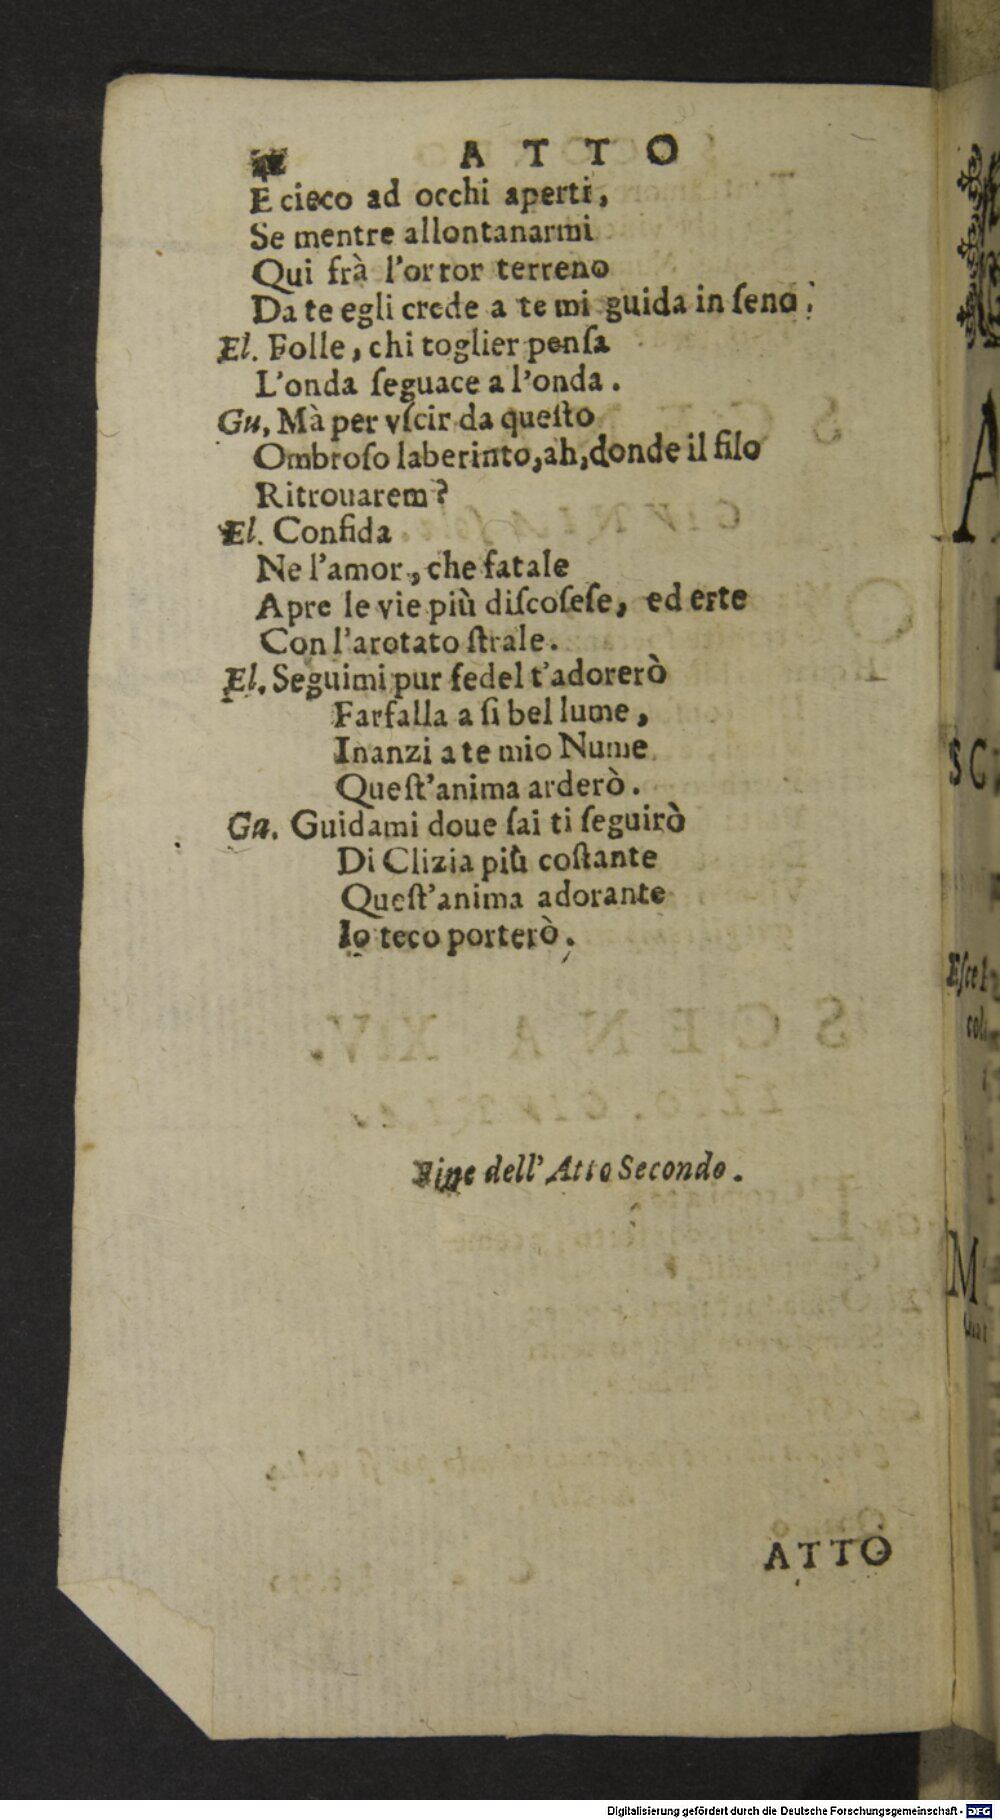 ATTO
E cieco ad occhi aperti,
Se mentre allontanarmi
Qui frà l'orror terreno
Da te egli crede a te mi guida in ſeno.
El. Folle, chi toglier penſa
L'onda ſeguace a l'onda.
Gu. Mà per vſcir da queſto
Ombroſo laberinto, ah, donde il filo
Ritrouarem?
El. Confida
Ne l'amor, che fatale
Apre le vie più diſcoſeſe, ed erte
Con l'arotato ſtrale.
El. Seguimi pur fedel t'adorerò
Farfalla a ſi bel lume,
Inanzi a te mio Nume
Queſt'anima arderò.
Ga. Guidami doue ſai ti ſeguirò
Di Clizia più coſtante
Queſt'anima adorante
Io teco porterò.
Fine dell' Atto Secondo.
ATTO
Digitalisierung gefördert durch die Deutsche Forschungsgemeinschaft - DFG